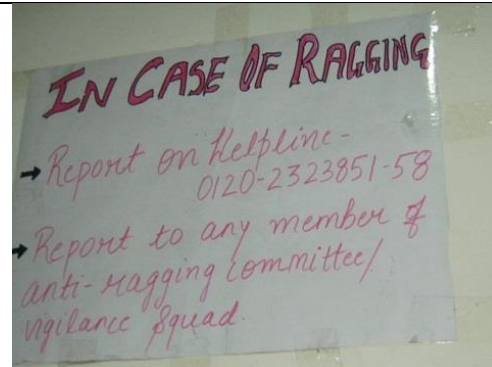 IN CASE OF RAGGING
→ Report on Helpline-
0120-2323851-58
→ Report to any member of
anti-ragging committee/
vigilance Squad.